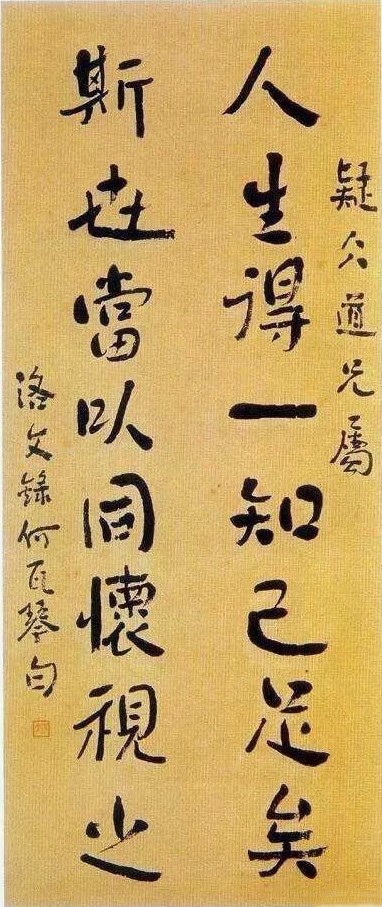 疑仌道兄属
人生得一知己足矣
斯世當以同懷視之
洛文録何瓦琴句